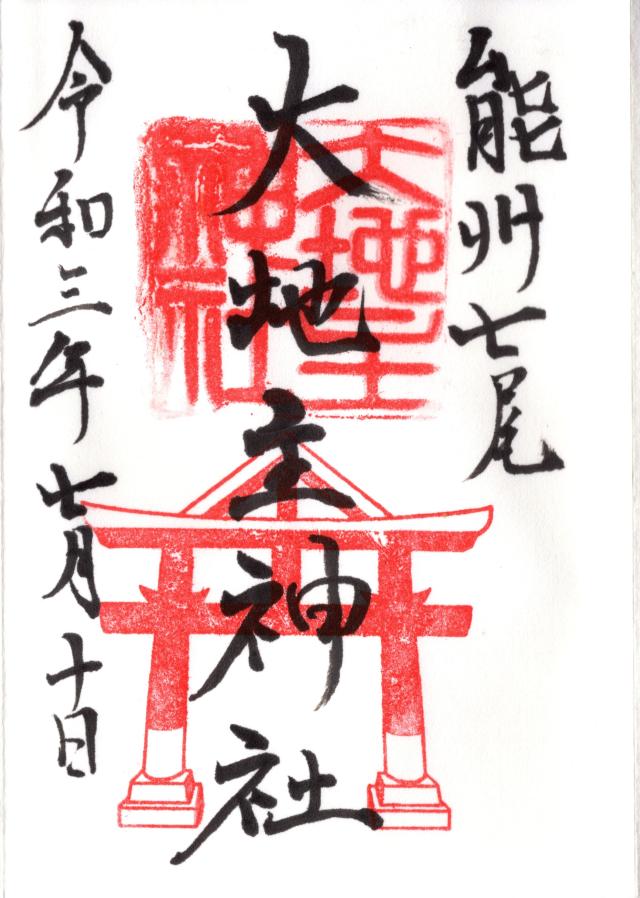 能州七尾
大地主神社
大地主
神社
令和三年七月十日